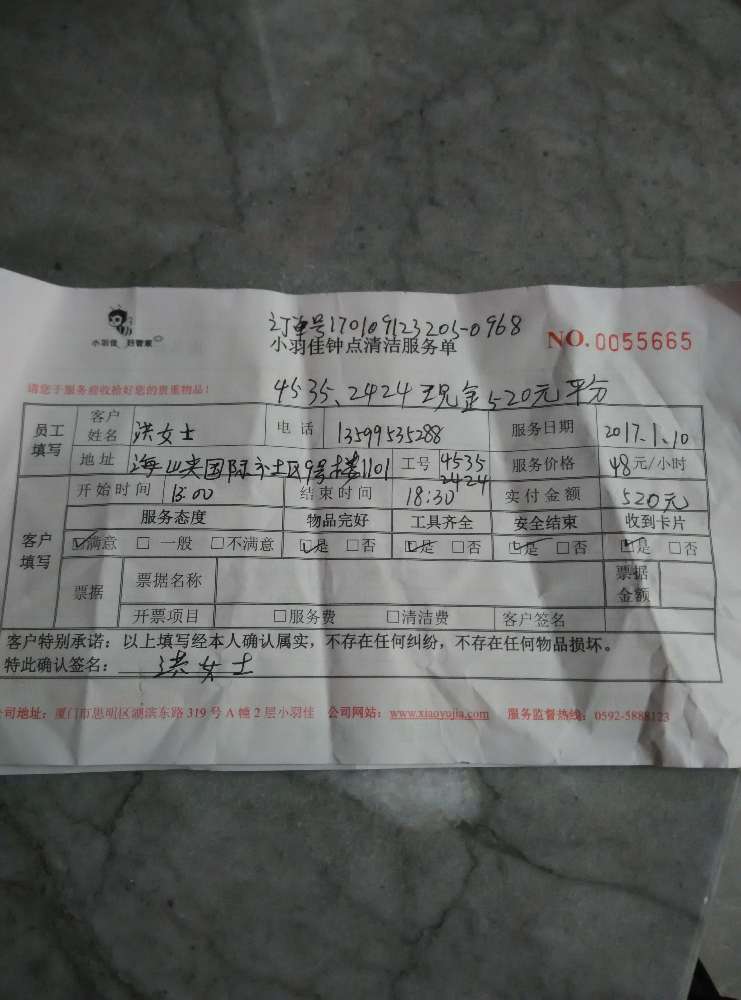 订单号170109123205-0968
小羽佳 好管家
小羽佳钟点清洁服务单
NO. 0055665
请您于服务前收拾好您的贵重物品!
4535、2424现金520元平分
员工填写 客户姓名 洪女士 电话 13599535288 服务日期 2017.1.10
地址 海山来国际社区9号楼1101 工号 4535 2424 服务价格 48元/小时
客户填写 开始时间 13:00 结束时间 18:30 实付金额 520元
服务态度 物品完好 工具齐全 安全结束 收到卡片
☑满意 □一般 □不满意 ☑是 □否 ☑是 □否 ☑是 □否 ☑是 □否
票据 票据名称 票据金额
开票项目 □服务费 □清洁费 客户签名
客户特别承诺:以上填写经本人确认属实,不存在任何纠纷,不存在任何物品损坏。
特此确认签名: 洪女士
公司地址:厦门市思明区湖滨东路319号A幢2层小羽佳 公司网站:www.xiaoyujia.com 服务监督热线:0592-5888123